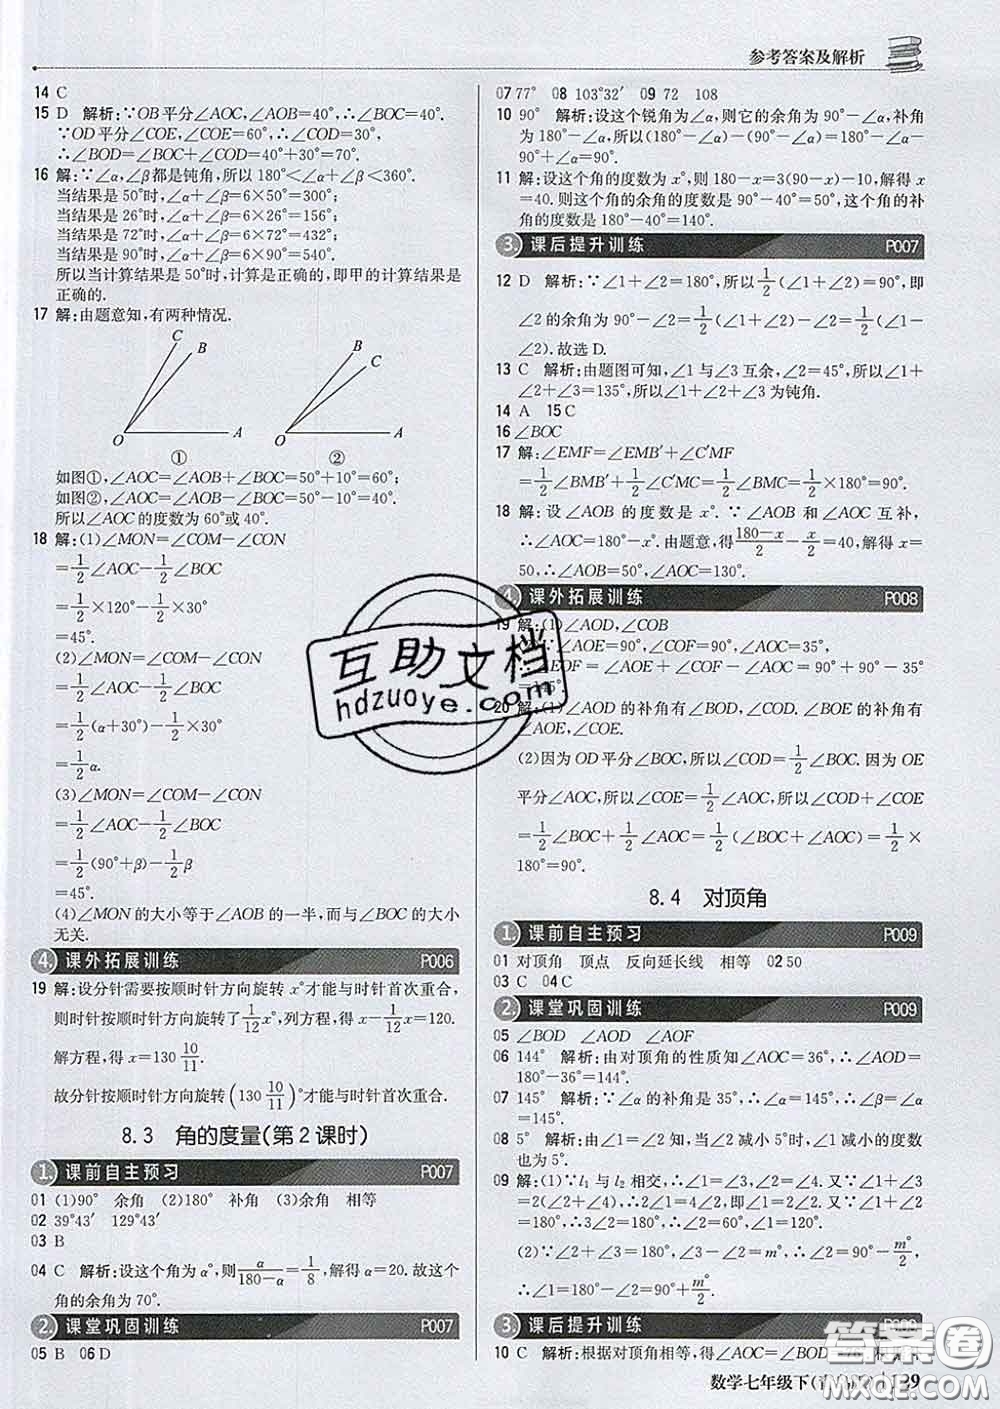 参考答案及解析
14 C
15 D 解析:∵OB平分∠AOC,∠AOB=40°,∴∠BOC=40°.
∵OD平分∠COE,∠COE=60°,∴∠COD=30°,
∴∠BOD=∠BOC+∠COD=40°+30°=70°.
16 解:∵∠α,∠β都是钝角,所以180°<∠α+∠β<360°.
当结果是50°时,∠α+∠β=6×50°=300°;
当结果是26°时,∠α+∠β=6×26°=156°;
当结果是72°时,∠α+∠β=6×72°=432°;
当结果是90°时,∠α+∠β=6×90°=540°;
所以当计算结果是50°时,计算是正确的,即甲的计算结果是
正确的.
17 解:由题意知,有两种情况.
C B O A ①
C B O A ②
如图①,∠AOC=∠AOB+∠BOC=50°+10°=60°;
如图②,∠AOC=∠AOB-∠BOC=50°-10°=40°.
所以∠AOC的度数为60°或40°.
18 解:(1)∠MON=∠COM-∠CON
=1/2∠AOC-1/2∠BOC
=1/2×120°-1/2×30°
=45°.
(2)∠MON=∠COM-∠CON
=1/2∠AOC-1/2∠BOC
=1/2(α+30°)-1/2×30°
=1/2α.
(3)∠MON=∠COM-∠CON
=1/2∠AOC-1/2∠BOC
=1/2(90°+β)-1/2β
=45°.
(4)∠MON的大小等于∠AOB的一半,而与∠BOC的大小
无关.
4. 课外拓展训练 P006
19 解:设分针需要按顺时针方向旋转x°才能与时针首次重合,
则时针按顺时针方向旋转了1/12x°,列方程,得x-1/12x=120.
解方程,得x=130 10/11.
故分针按顺时针方向旋转(130 10/11)°才能与时针首次重合.
8.3 角的度量(第2课时)
1. 课前自主预习 P007
01 (1)90° 余角 (2)180° 补角 (3)余角 相等
02 39°43′ 129°43′
03 B
04 C 解析:设这个角为α°,则α/(180-α)=1/8,解得α=20.故这个
角的余角为70°.
2. 课堂巩固训练 P007
05 B 06 D
07 77° 08 103°32′ 09 72 108
10 90° 解析:设这个锐角为∠α,则它的余角为90°-∠α,补角
为180°-∠α,所以(180°-∠α)-(90°-∠α)=180°-∠α-
90°+∠α=90°.
11 解:设这个角的度数为x°,则180-x=3(90-x)-10,解得x
=40.则这个角的余角的度数是90°-40°=50°,这个角的补
角的度数是180°-40°=140°.
3. 课后提升训练 P007
12 D 解析:∵∠1+∠2=180°,所以1/2(∠1+∠2)=90°,即
∠2的余角为90°-∠2=1/2(∠1+∠2)-∠2=1/2(∠1-
∠2).故选D.
13 C 解析:由题图可知,∠1与∠3互余,∠2=45°,所以∠1+
∠2+∠3=135°,所以∠1+∠2+∠3为钝角.
14 A 15 C
16 ∠BOC
17 解:∠EMF=∠EMB′+∠C′MF
=1/2∠BMB′+1/2∠CMC′=1/2∠BMC=1/2×180°=90°.
18 解:设∠AOB的度数是x°.∵∠AOB和∠AOC互补,
∴∠AOC=180°-x°.由题意,得(180-x)/2-x/2=40,解得x=
50,∴∠AOB=50°,∠AOC=130°.
4. 课外拓展训练 P008
19 解:(1)∠AOD,∠COB
(2)∵∠AOE=90°,∠COF=90°,∠AOC=35°,
∴∠EOF=∠AOE+∠COF-∠AOC=90°+90°-35°
=145°.
20 解:(1)∠AOD的补角有∠BOD,∠COD.∠BOE的补角有
∠AOE,∠COE.
(2)因为OD平分∠BOC,所以∠COD=1/2∠BOC.因为OE
平分∠AOC,所以∠COE=1/2∠AOC,所以∠COD+∠COE
=1/2∠BOC+1/2∠AOC=1/2(∠BOC+∠AOC)=1/2×
180°=90°.
8.4 对顶角
1. 课前自主预习 P009
01 对顶角 顶点 反向延长线 相等 02 50
03 C 04 C
2. 课堂巩固训练 P009
05 ∠BOD ∠AOD ∠AOF
06 144° 解析:由对顶角的性质知∠AOC=36°,∴∠AOD=
180°-36°=144°.
07 145° 解析:∵∠α的补角是35°,∴∠α=145°,∴∠1=∠α
=145°.
08 5° 解析:由∠1=∠2,知当∠2减小5°时,∠1减小的度数
也为5°.
09 解:(1)∵l₁与l₂相交,∴∠1=∠3,∠2=∠4.又∵∠1+∠3
=2(∠2+∠4),∴∠1=2∠4,即∠1=2∠2.又∵∠1+∠2
=180°,∴3∠2=180°,∴∠2=60°,∴∠1=120°.
(2)∵∠2+∠3=180°,∠3-∠2=m°,∴∠2=90°-m°/2,
∴∠1=180°-∠2=90°+m°/2.
3. 课后提升训练 P009
10 C 解析:根据对顶角相等,得∠BOC=
数学七年级下
互助文档
hdzuoye.com
答案圈
MXQE.COM